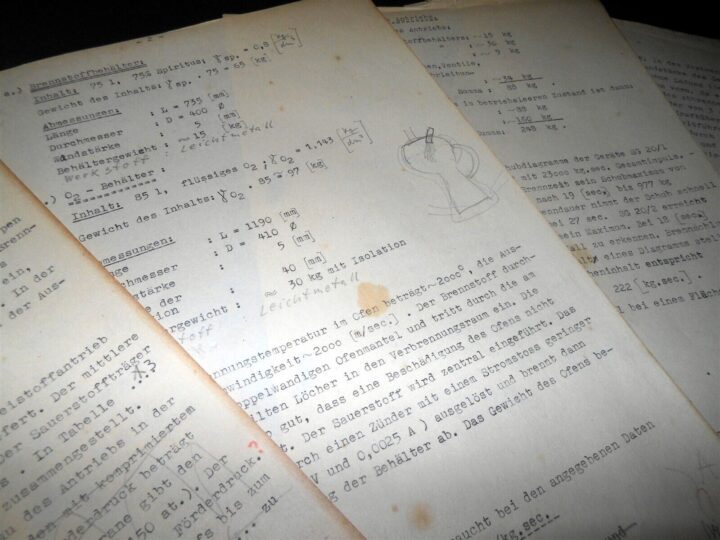 a.) Brennstoffbehälter:
Inhalt: 75 l, 75% Spiritus; γ sp. = 0,9 [kg/dm³]
Gewicht des Inhalts: γ sp. 75 = 65 [kg]
Abmessungen:
Länge : L = 735 [mm]
Durchmesser : D = 400 Ø
Wandstärke : 5 [mm]
Behältergewicht : ~ 15 [kg]
Werkstoff : Leichtmetall
.) O₂ - Behälter:
Inhalt: 85 l, flüssiges O₂; γ O₂ = 1,143 [kg/dm³]
Gewicht des Inhalts: γ O₂ . 85 = 97 [kg]
messungen:
nge : L = 1190 [mm]
rchmesser : D = 410 Ø
stärke : 5 [mm]
e der
tion : 40 [mm]
tergewicht : ≈ 30 kg mit Isolation
toff : Leichtmetall
nnungstemperatur im Ofen beträgt ~ 2000°, die Aus-
windigkeit ~ 2000 [m/sec.] . Der Brennstoff durch-
oppelwandigen Ofenmantel und tritt durch die am
ilten Löcher in den Verbrennungsraum ein. Die
gut, dass eine Beschädigung des Ofens nicht
t. Der Sauerstoff wird zentral eingeführt. Das
rch einen Zünder mit einem Stromstoss geringer
V und 0,0025 A ) ausgelöst und brennt dann
g der Behälter ab. Das Gewicht des Ofens be-
raucht bei den angegebenen Daten
/kg.sec.
pen
enn-
ein,
. In der
der Aus-
eistoffantrieb
fert. Der mittlere
er Sauerstoffträger
s . In Tabelle 3
zusammengestellt.
u des Antriebs in der
den mit komprimiertem
derdruck beträgt ?
rane gibt den
50 at.). Der
Förderdruck.
fs bis zum
... zu
e Antriebe:
toffbehälters: ~ 15 kg
" : ~ 30 kg
: ~ 9 kg
en, Ventile,
hrleitun- : ~34 kg
Summa : 88 kg
e in betriebsklarem Zustand ist dann:
: ~ 88 kg
: ~160 kg
Summa: 248 kg.
hubdiagramme der Geräte SG 20/1
mit 23000 kg.sec. Gesamtimpuls. -
Brennzeit sein Schubmaximum von
nach 19 [sec.] bis 977 kg
enndauer nimmt der Schub schnell
ei 27 sec. SG 20/2 erreicht
sein Maximum. Bei 18 [sec.]
all zu erkennen. Brennschl
eines Diagramms stell
heninhalt entspricht
222 [kg.sec.] .
l bei einem Fläch